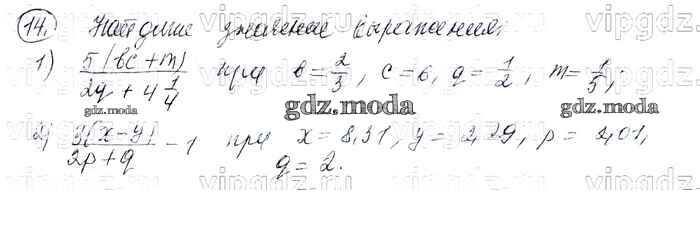 14. Найдите значение выражения:
1) 5(bc+m) / 2q + 4 1/4 при b = 2/3, c = 6, q = 1/2, m = 1/5;
gdz.moda
gdz.moda
gdz.moda
2) 3(x-y) / 2p+q - 1 при x = 8,31, y = 2,29, p = 2,01,
q = 2.
vipgdz.ru vipgdz.ru vipgdz.ru vipgdz